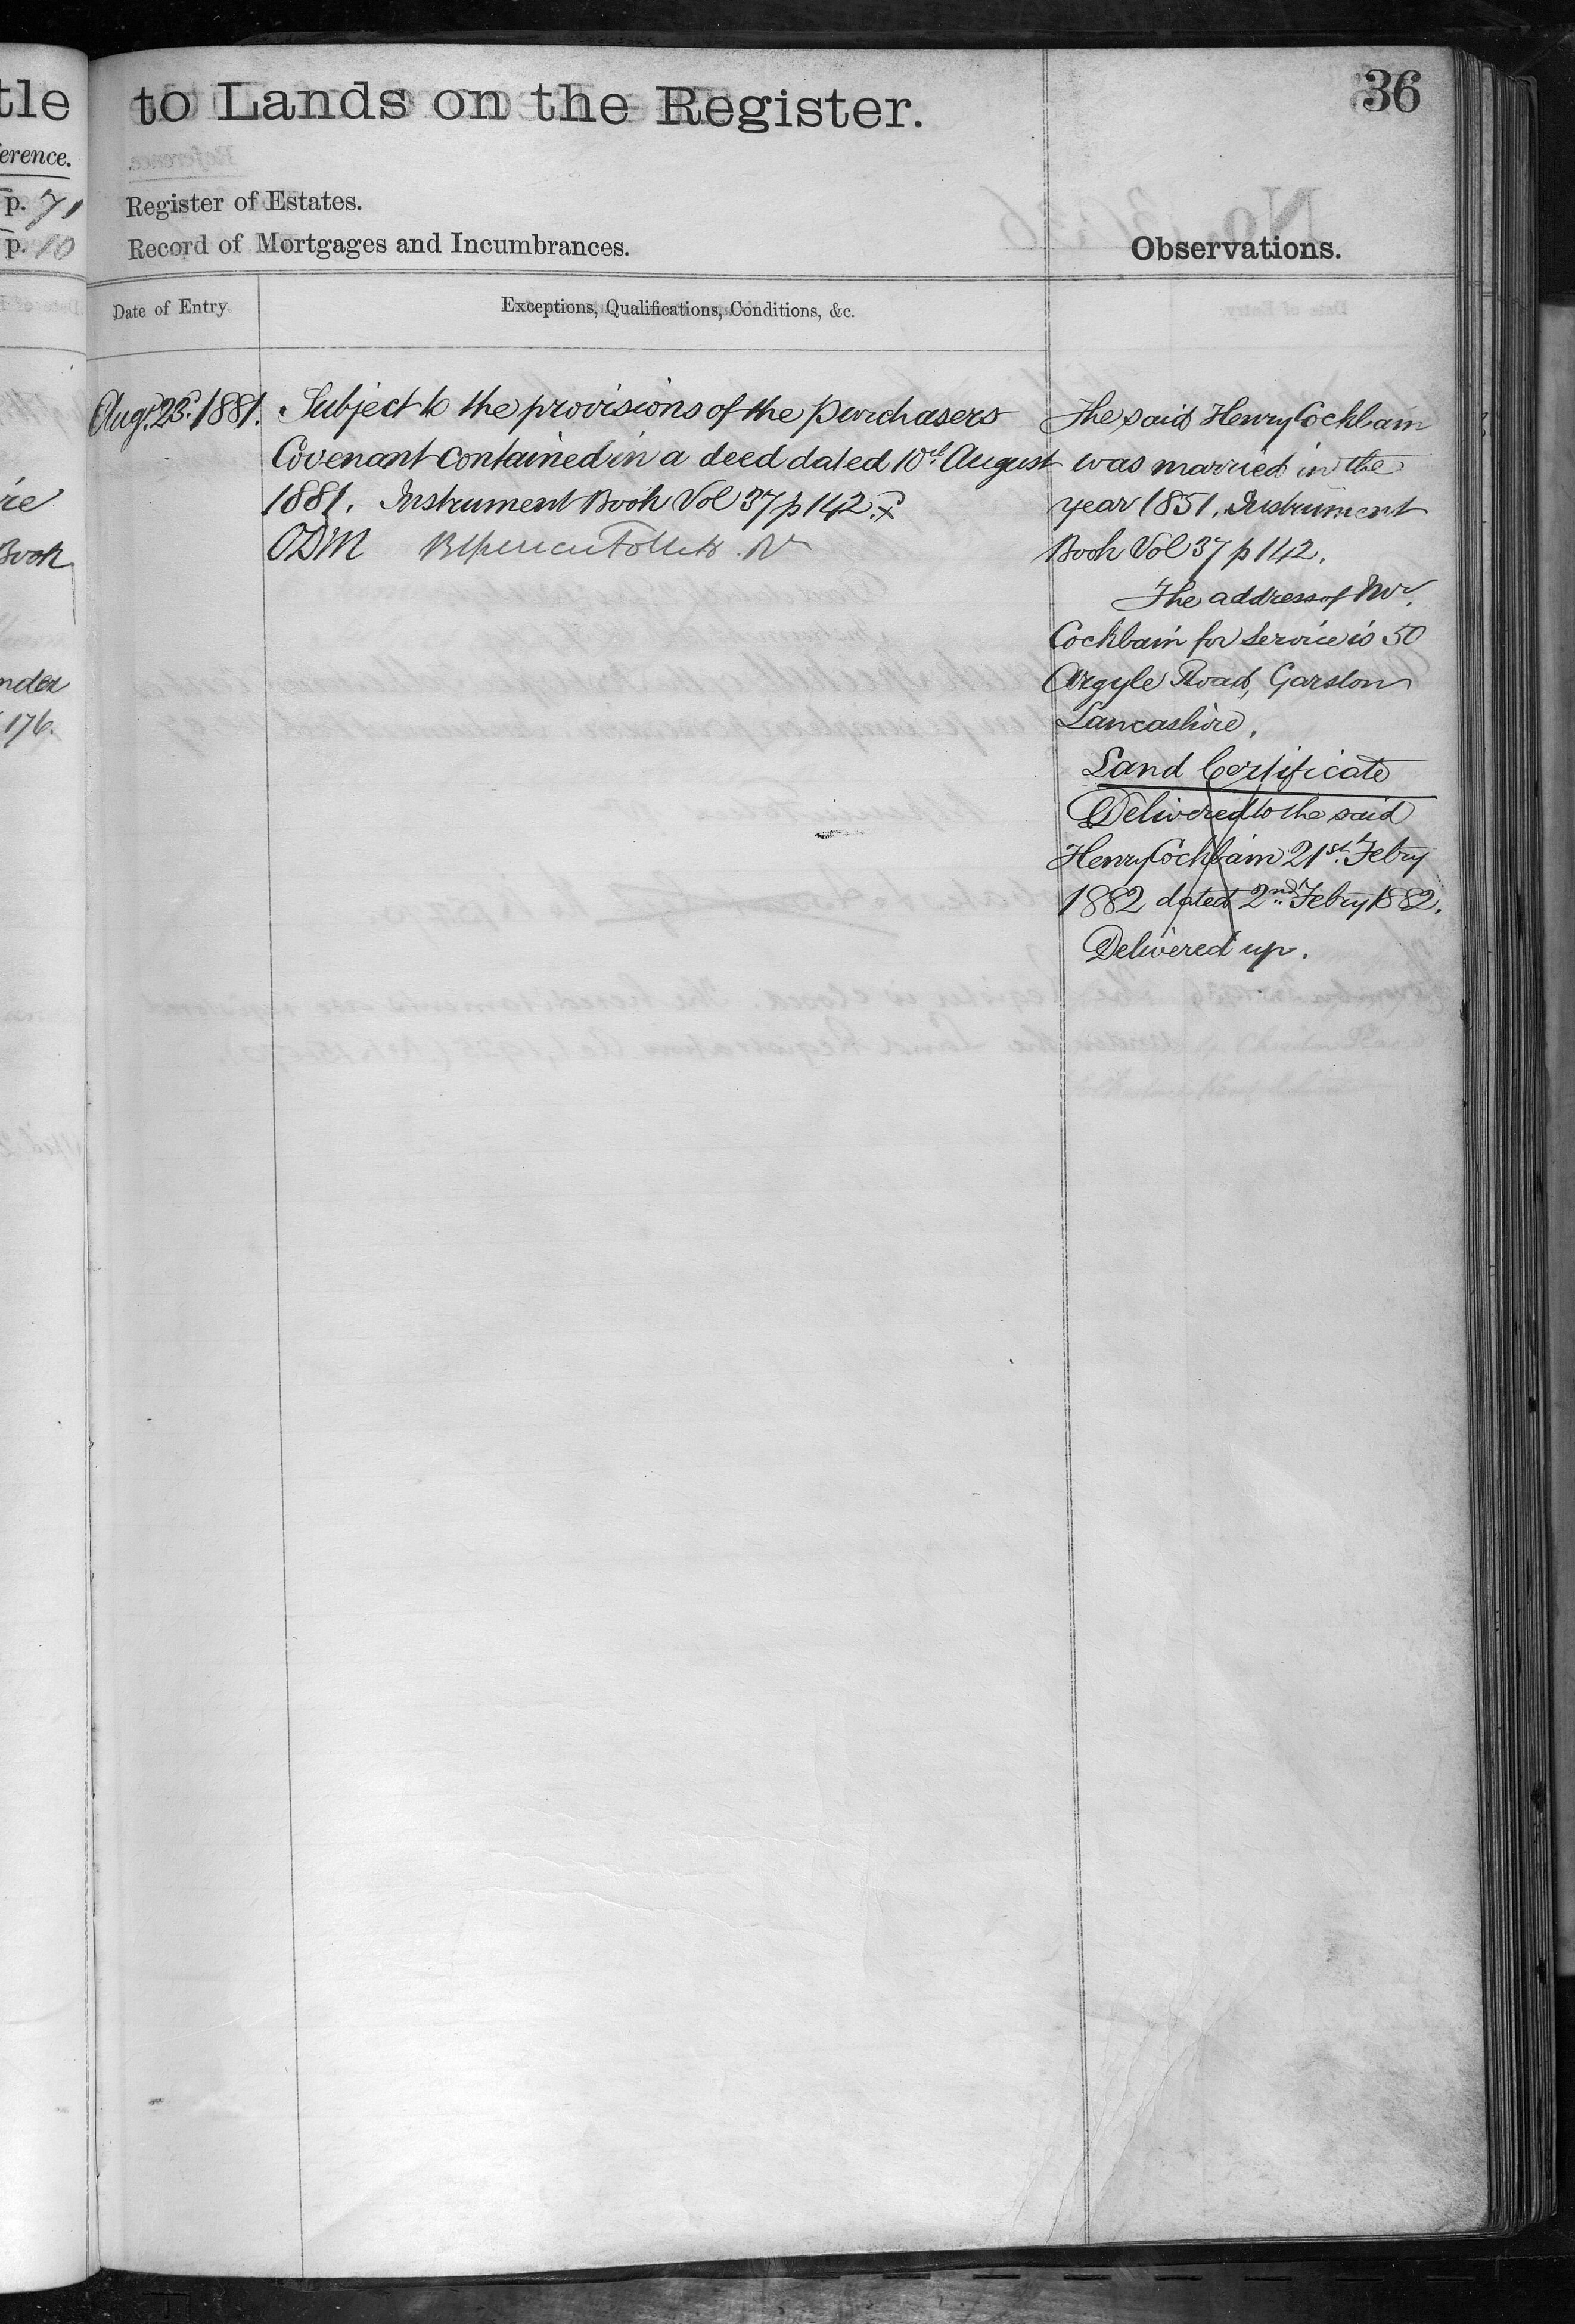 tle
erence.
p. 71
p. 10
re
Book
ndex
176.
36
to Lands on the Register.
Register of Estates.
Record of Mortgages and Incumbrances.
Observations.
Date of Entry.
Exceptions, Qualifications, Conditions, &c.
Augt. 23d. 1881.
Subject to the provisions of the purchasers
Covenant contained in a deed dated 10th August
1881. Instrument Book Vol 37 p 142.
ODM
The said Henry Cockbain
was married in the
year 1851. Instrument
Book Vol 37 p 142.
The address of Mr.
Cockbain for service is 50
Argyle Road, Garston
Lancashire.
Land Certificate
Delivered to the said
Henry Cockbain 21st. Febry
1882 dated 2nd. Febry 1882.
Delivered up.